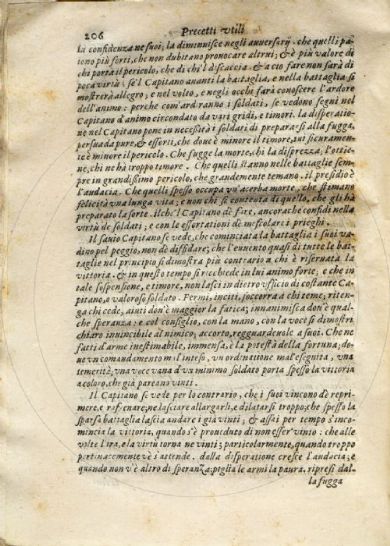 206 Precetti vtili
la confidenza ne suoi, la diminuisce negli auuersarij. che quelli pa-
iono piu forti, che non dubitano prouocare altrui; & è piu valore di
chi porta il pericolo, che di chi'l discaccia. & a cio fare non sarà di
poca virtù: se'l Capitano auanti la battaglia, e nella battaglia si
mostrerà allegro; e nel volto, e negli occhi farà conoscere l'ardore
dell'animo: perche com'ardiranno i soldati, se vedono segni nel
Capitano d'animo circondato da varij gridi, e timori. la disperatio-
ne nel Capitano pone in necessità i soldati di preparasi alla fugga,
persuada pure, & essorti, che doue è minore il timore, iui sicuramen-
te è minor il pericolo. Che fugge la morte, chi la disprezza, l'ottie-
ne, chi ne hà troppo timore. Che quelli stanno nelle battaglie sem-
pre in grandissimo pericolo, che grandemente temano. Il presidio è
l'audacia. Che quelli spesso occupa vn'acerba morte, che stimano
felicità vna lunga vita; e non si contenta di quello, che gli hà
preparato la sorte. il che'l Capitano dè fare, ancorche confidi nella
virtù de soldati; e con le essortationi dè mescolare i prieghi.
Il sauio Capitano se vede, che cominciata la battaglia i suoi va-
dino pel peggio, non dè diffidare; che l'euuento quasi di tutte le bat-
taglie nel principio si dimostra più contrario a chi è riseruata la
vittoria. & in questo tempo si richiede in lui animo forte, e che in
tale sospensione, e timore, non lasci in dietro vfficio di costante Ca-
pitano, e valoroso soldato. Fermi, inciti, soccorra a chi teme; riten-
ga chi cede, aiuti doue è maggior la fatica; innanimisca don'è qual-
che speranza: e col consiglio, con la mano, con la voce si dimostri
chiaro inuincibile d'animo; accorto, reguardeuole a suoi. Che ne
fatti d'arme inestimabile, immensa, è la potestà della fortuna; do-
ue vn comandamento mal inteso, vn'ordinatione mal'eseguita, vna
temerità, vna voce vana d'un minimo soldato porta spesso la vittoria
a coloro, che già pareano vinti.
Il Capitano se vede per lo contrario, che i suoi vincono dè repri-
mere, e rafrenare; ne lasciare allargarli, e dilatarsi troppo; che spesso la
sparsa battaglia lascia andare i già vinti; & assai per tempo s'inco-
mincia la vittoria, quando s'è proueduto di non esser vinto: che alle
volte l'ira, e la virtù torna ne vinti; particolarmente, quando troppo
pertinacemente v'è s'attende. dalla disperatione cresce l'audacia; e
quando non v'è altro di speranza; piglia le armi la paura. ripresi dal-
la fugga